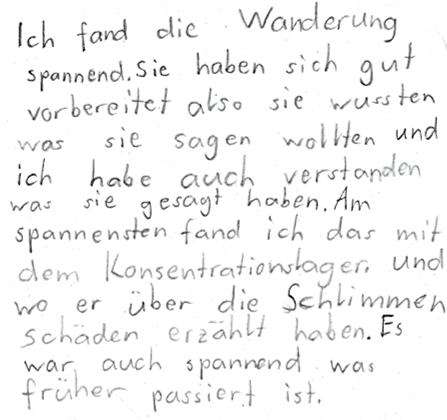 Ich fand die Wanderung
spannend. Sie haben sich gut
vorbereitet also sie wussten
was sie sagen wollten und
ich habe auch verstanden
was sie gesagt haben. Am
spannensten fand ich das mit
dem Konsentrationslager. und
wo er über die Schlimmen
Schäden erzählt haben. Es
war auch spannend was
früher passiert ist.